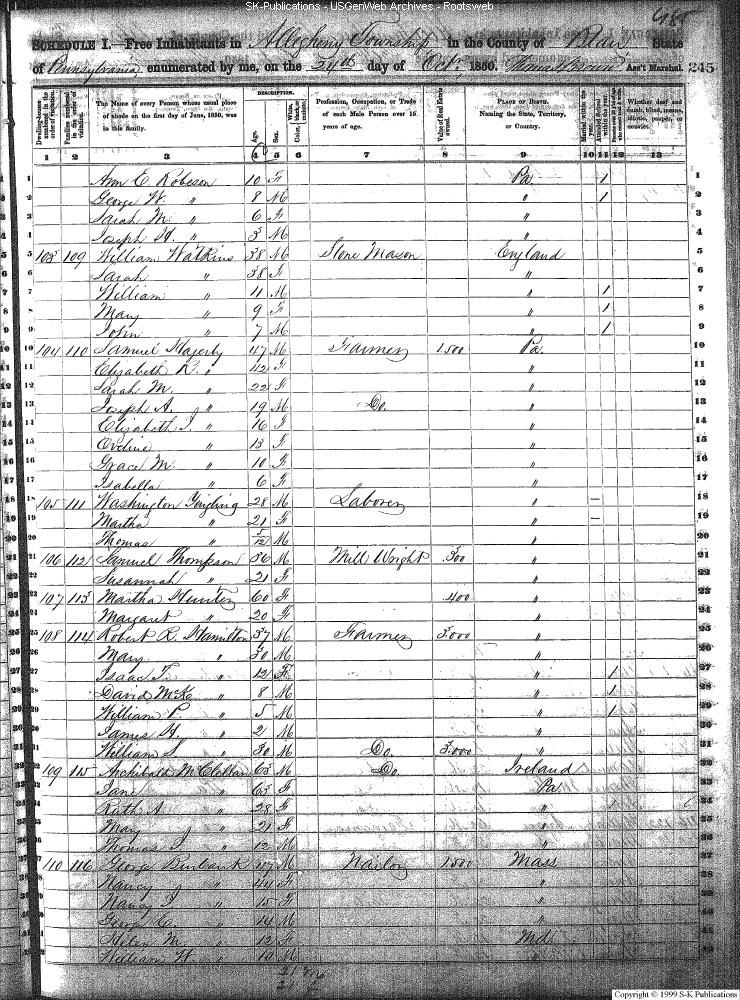 SK-Publications - USGenWeb Archives - Rootsweb
485
SCHEDULE I.—Free Inhabitants in Allegheny Township in the County of Blair State
of Pennsylvania enumerated by me, on the 24th day of Octr, 1850. Ass't Marshal. 245
Dwelling-houses numbered in the order of visitation. Families numbered in the order of visitation. The Name of every Person whose usual place of abode on the first day of June, 1850, was in this family. DESCRIPTION. Age. Sex. White, black, or mulatto. Color, Profession, Occupation, or Trade of each Male Person over 15 years of age. Value of Real Estate owned. PLACE OF BIRTH. Naming the State, Territory, or Country. Married within the year. Attended School within the year. Whether deaf and dumb, blind, insane, idiotic, pauper, or convict.
1 2 3 4 5 6 7 8 9 10 11 12 13
1 Ann E. Robeson 10 F Pa 1 1
2 George W. " 8 M " 1 2
3 Sarah M. " 6 F " 3
4 Joseph H. " 3 M " 4
5 103 109 William Watkins 38 M Stone Mason England 5
6 Sarah " 38 F " 6
7 William " 11 M " 1 7
8 Mary " 9 F " 1 8
9 John " 7 M " 1 9
10 104 110 Samuel Hagerty 47 M Farmer 1500 Pa. 10
11 Elizabeth R. " 42 F " 11
12 Sarah M. " 22 F " 12
13 Joseph A. " 19 M Do. " 13
14 Elizabeth J. " 16 F " 14
15 Eveline " 13 F " 15
16 Grace M. " 10 F " 16
17 Isabella " 6 F " 17
18 105 111 Washington Yingling 28 M Laborer " – 18
19 Martha " 21 F " – 19
20 Thomas " /12 M " 20
21 106 112 Samuel Thompson 36 M Mill Wright 300 " 21
22 Susannah " 21 F " 22
23 107 113 Martha Hunter 60 F 400 " 23
24 Margaret " 20 F " 24
25 108 114 Robert R. Hamilton 37 M Farmer 3.000 " 25
26 Mary " 30 M " 26
27 Isaac T. " 12 " 1 27
28 David McK " 8 M " 1 28
29 William P. " 5 M " 1 29
30 James H. " 2 M " 30
31 William S. " 30 M Do. 3.000 " 31
32 109 115 Archibald McClellan 63 M Do. Ireland 32
33 Jane " 63 F Pa 33
34 Ruth A. " 28 F " 34
35 Mary " 21 F " 35
36 Thomas J. " 12 M " 36
37 110 116 George Burbank 47 M Nailor 1.500 Mass 37
38 Nancy " 44 F " 38
39 Nancy J. " 15 F " 39
40 George C. " 14 M " 40
41 Helen M. " 12 F Md. 41
42 William W. " 10 M " 42
21 m
21 f
Copyright © 1999 S-K Publications